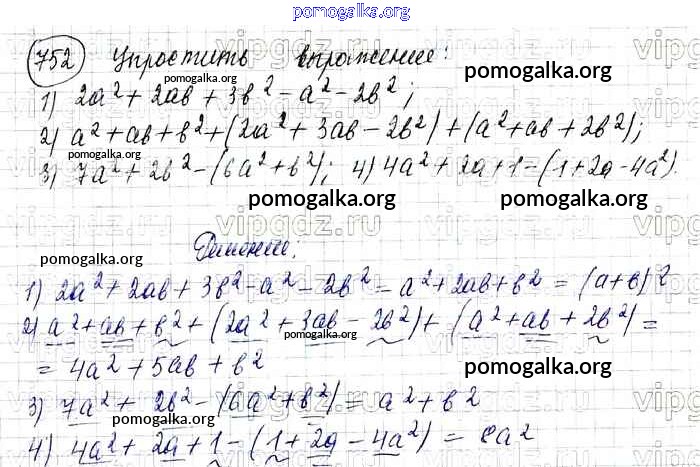 pomogalka.org
752 Упростить выражение:
pomogalka.org pomogalka.org
1) 2a² + 2ab + 3b² - a² - 2b²;
2) a² + ab + b² + (2a² + 3ab - 2b²) + (a² + ab + 2b²);
pomogalka.org
3) 7a² + 2b² - (6a² + b²); 4) 4a² + 2a + 1 - (1 + 2a - 4a²).
pomogalka.org pomogalka.org
vipgdz.ru vipgdz.ru
Решение:
pomogalka.org
1) 2a² + 2ab + 3b² - a² - 2b² = a² + 2ab + b² = (a + b)²
2) a² + ab + b² + (2a² + 3ab - 2b²) + (a² + ab + 2b²) =
pomogalka.org
= 4a² + 5ab + b²
pomogalka.org pomogalka.org
3) 7a² + 2b² - (6a² + b²) = a² + b²
pomogalka.org
4) 4a² + 2a + 1 - (1 + 2a - 4a²) = 8a²